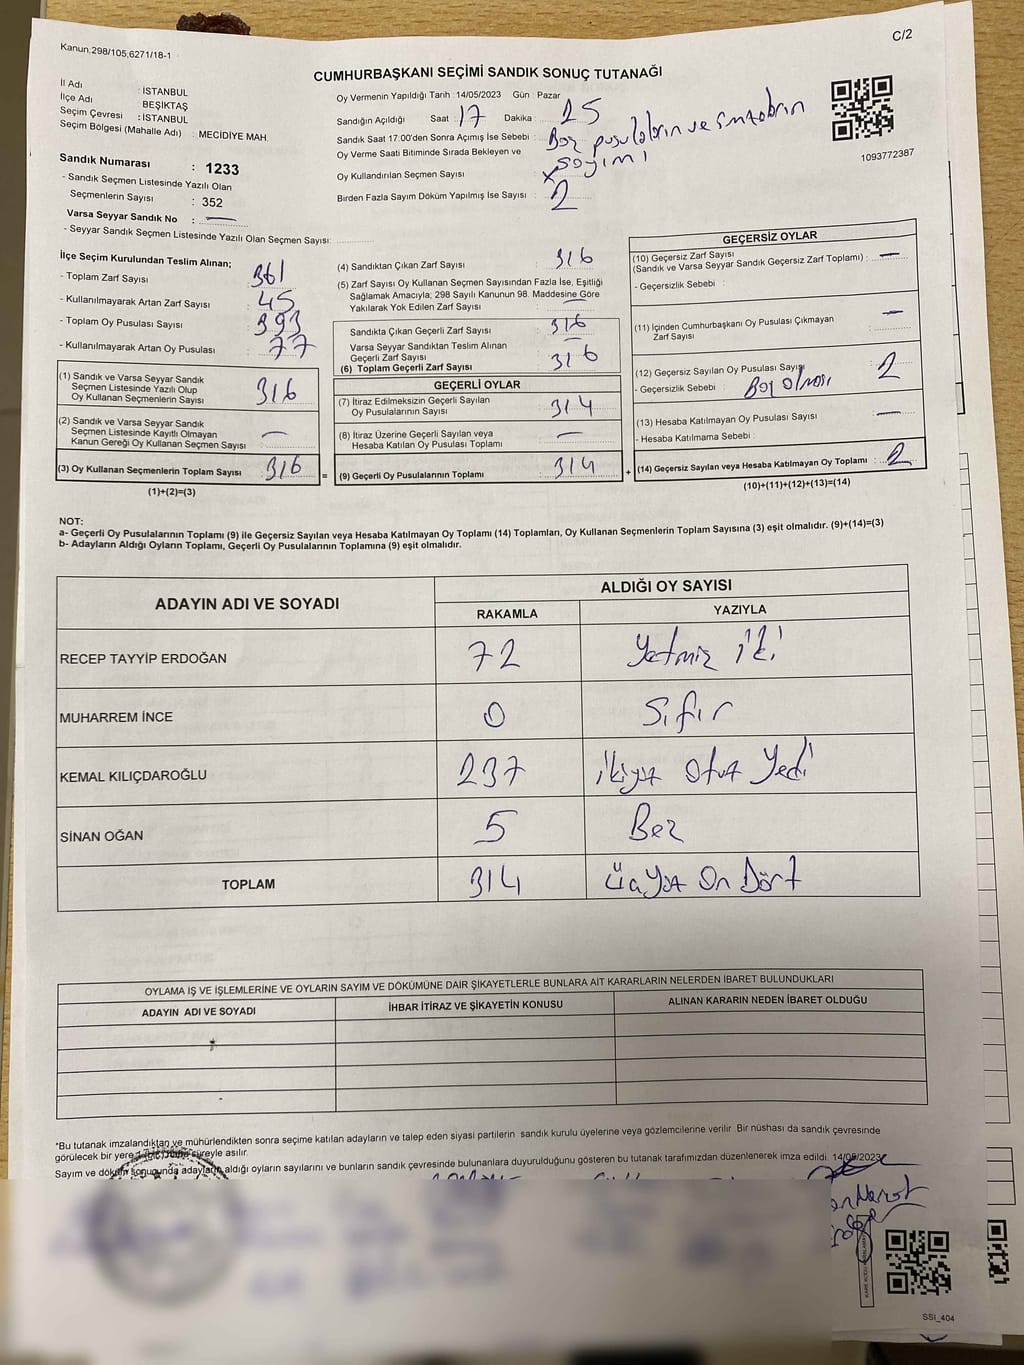 Kanun,298/105,6271/18-1
C/2
CUMHURBAŞKANI SEÇİMİ SANDIK SONUÇ TUTANAĞI
İl Adı : İSTANBUL
İlçe Adı : BEŞİKTAŞ
Seçim Çevresi : İSTANBUL
Seçim Bölgesi (Mahalle Adı) : MECİDİYE MAH.
Sandık Numarası : 1233
- Sandık Seçmen Listesinde Yazılı Olan
Seçmenlerin Sayısı : 352
Varsa Seyyar Sandık No : —
- Seyyar Sandık Seçmen Listesinde Yazılı Olan Seçmen Sayısı:
Oy Vermenin Yapıldığı Tarih :14/05/2023 Gün : Pazar
Sandığın Açıldığı Saat : 17 Dakika : 25
Sandık Saat 17.00'den Sonra Açımış İse Sebebi : Boş pusulaların ve
Oy Verme Saati Bitiminde Sırada Bekleyen ve sayımı
Oy Kullandırılan Seçmen Sayısı : x
Birden Fazla Sayım Döküm Yapılmış İse Sayısı : 2
1093772387
İlçe Seçim Kurulundan Teslim Alınan;
- Toplam Zarf Sayısı : 361
- Kullanılmayarak Artan Zarf Sayısı : 45
- Toplam Oy Pusulası Sayısı : 393
- Kullanılmayarak Artan Oy Pusulası : 77
(1) Sandık ve Varsa Seyyar Sandık
Seçmen Listesinde Yazılı Olup
Oy Kullanan Seçmenlerin Sayısı : 316
(2) Sandık ve Varsa Seyyar Sandık
Seçmen Listesinde Kayıtlı Olmayan
Kanun Gereği Oy Kullanan Seçmen Sayısı : —
(3) Oy Kullanan Seçmenlerin Toplam Sayısı : 316
(1)+(2)=(3)
(4) Sandıktan Çıkan Zarf Sayısı : 316
(5) Zarf Sayısı Oy Kullanan Seçmen Sayısından Fazla İse, Eşitliği
Sağlamak Amacıyla; 298 Sayılı Kanunun 98. Maddesine Göre
Yakılarak Yok Edilen Zarf Sayısı : —
Sandıkta Çıkan Geçerli Zarf Sayısı : 316
Varsa Seyyar Sandıktan Teslim Alınan
Geçerli Zarf Sayısı : —
(6) Toplam Geçerli Zarf Sayısı : 316
GEÇERLİ OYLAR
(7) İtiraz Edilmeksizin Geçerli Sayılan
Oy Pusulalarının Sayısı : 314
(8) İtiraz Üzerine Geçerli Sayılan veya
Hesaba Katılan Oy Pusulası Toplamı : —
= (9) Geçerli Oy Pusulalarının Toplamı : 314
GEÇERSİZ OYLAR
(10) Geçersiz Zarf Sayısı
(Sandık ve Varsa Seyyar Sandık Geçersiz Zarf Toplamı) : —
- Geçersizlik Sebebi :
(11) İçinden Cumhurbaşkanı Oy Pusulası Çıkmayan
Zarf Sayısı : —
(12) Geçersiz Sayılan Oy Pusulası Sayısı : 2
- Geçersizlik Sebebi : Boş olması
(13) Hesaba Katılmayan Oy Pusulası Sayısı : —
- Hesaba Katılmama Sebebi :
+ (14) Geçersiz Sayılan veya Hesaba Katılmayan Oy Toplamı : 2
(10)+(11)+(12)+(13)=(14)
NOT:
a- Geçerli Oy Pusulalarının Toplamı (9) ile Geçersiz Sayılan veya Hesaba Katılmayan Oy Toplamı (14) Toplamları, Oy Kullanan Seçmenlerin Toplam Sayısına (3) eşit olmalıdır. (9)+(14)=(3)
b- Adayların Aldığı Oyların Toplamı, Geçerli Oy Pusulalarının Toplamına (9) eşit olmalıdır.
ADAYIN ADI VE SOYADI
ALDIĞI OY SAYISI
RAKAMLA YAZIYLA
RECEP TAYYİP ERDOĞAN 72 Yetmiş iki
MUHARREM İNCE 0 Sıfır
KEMAL KILIÇDAROĞLU 237 ikiyüz otuz Yedi
SİNAN OĞAN 5 Beş
TOPLAM 314 Üçyüz On Dört
OYLAMA İŞ VE İŞLEMLERİNE VE OYLARIN SAYIM VE DÖKÜMÜNE DAİR ŞİKAYETLERLE BUNLARA AİT KARARLARIN NELERDEN İBARET BULUNDUKLARI
ADAYIN ADI VE SOYADI İHBAR İTİRAZ VE ŞİKAYETİN KONUSU ALINAN KARARIN NEDEN İBARET OLDUĞU
*Bu tutanak imzalandıktan ve mühürlendikten sonra seçime katılan adayların ve talep eden siyasi partilerin sandık kurulu üyelerine veya gözlemcilerine verilir Bir nüshası da sandık çevresinde
görülecek bir yere süreyle asılır.
Sayım ve döküm sonucunda adayların aldığı oyların sayılarını ve bunların sandık çevresinde bulunanlara duyurulduğunu gösteren bu tutanak tarafımızdan düzenlenerek imza edildi. 14/05/2023
SSİ_404